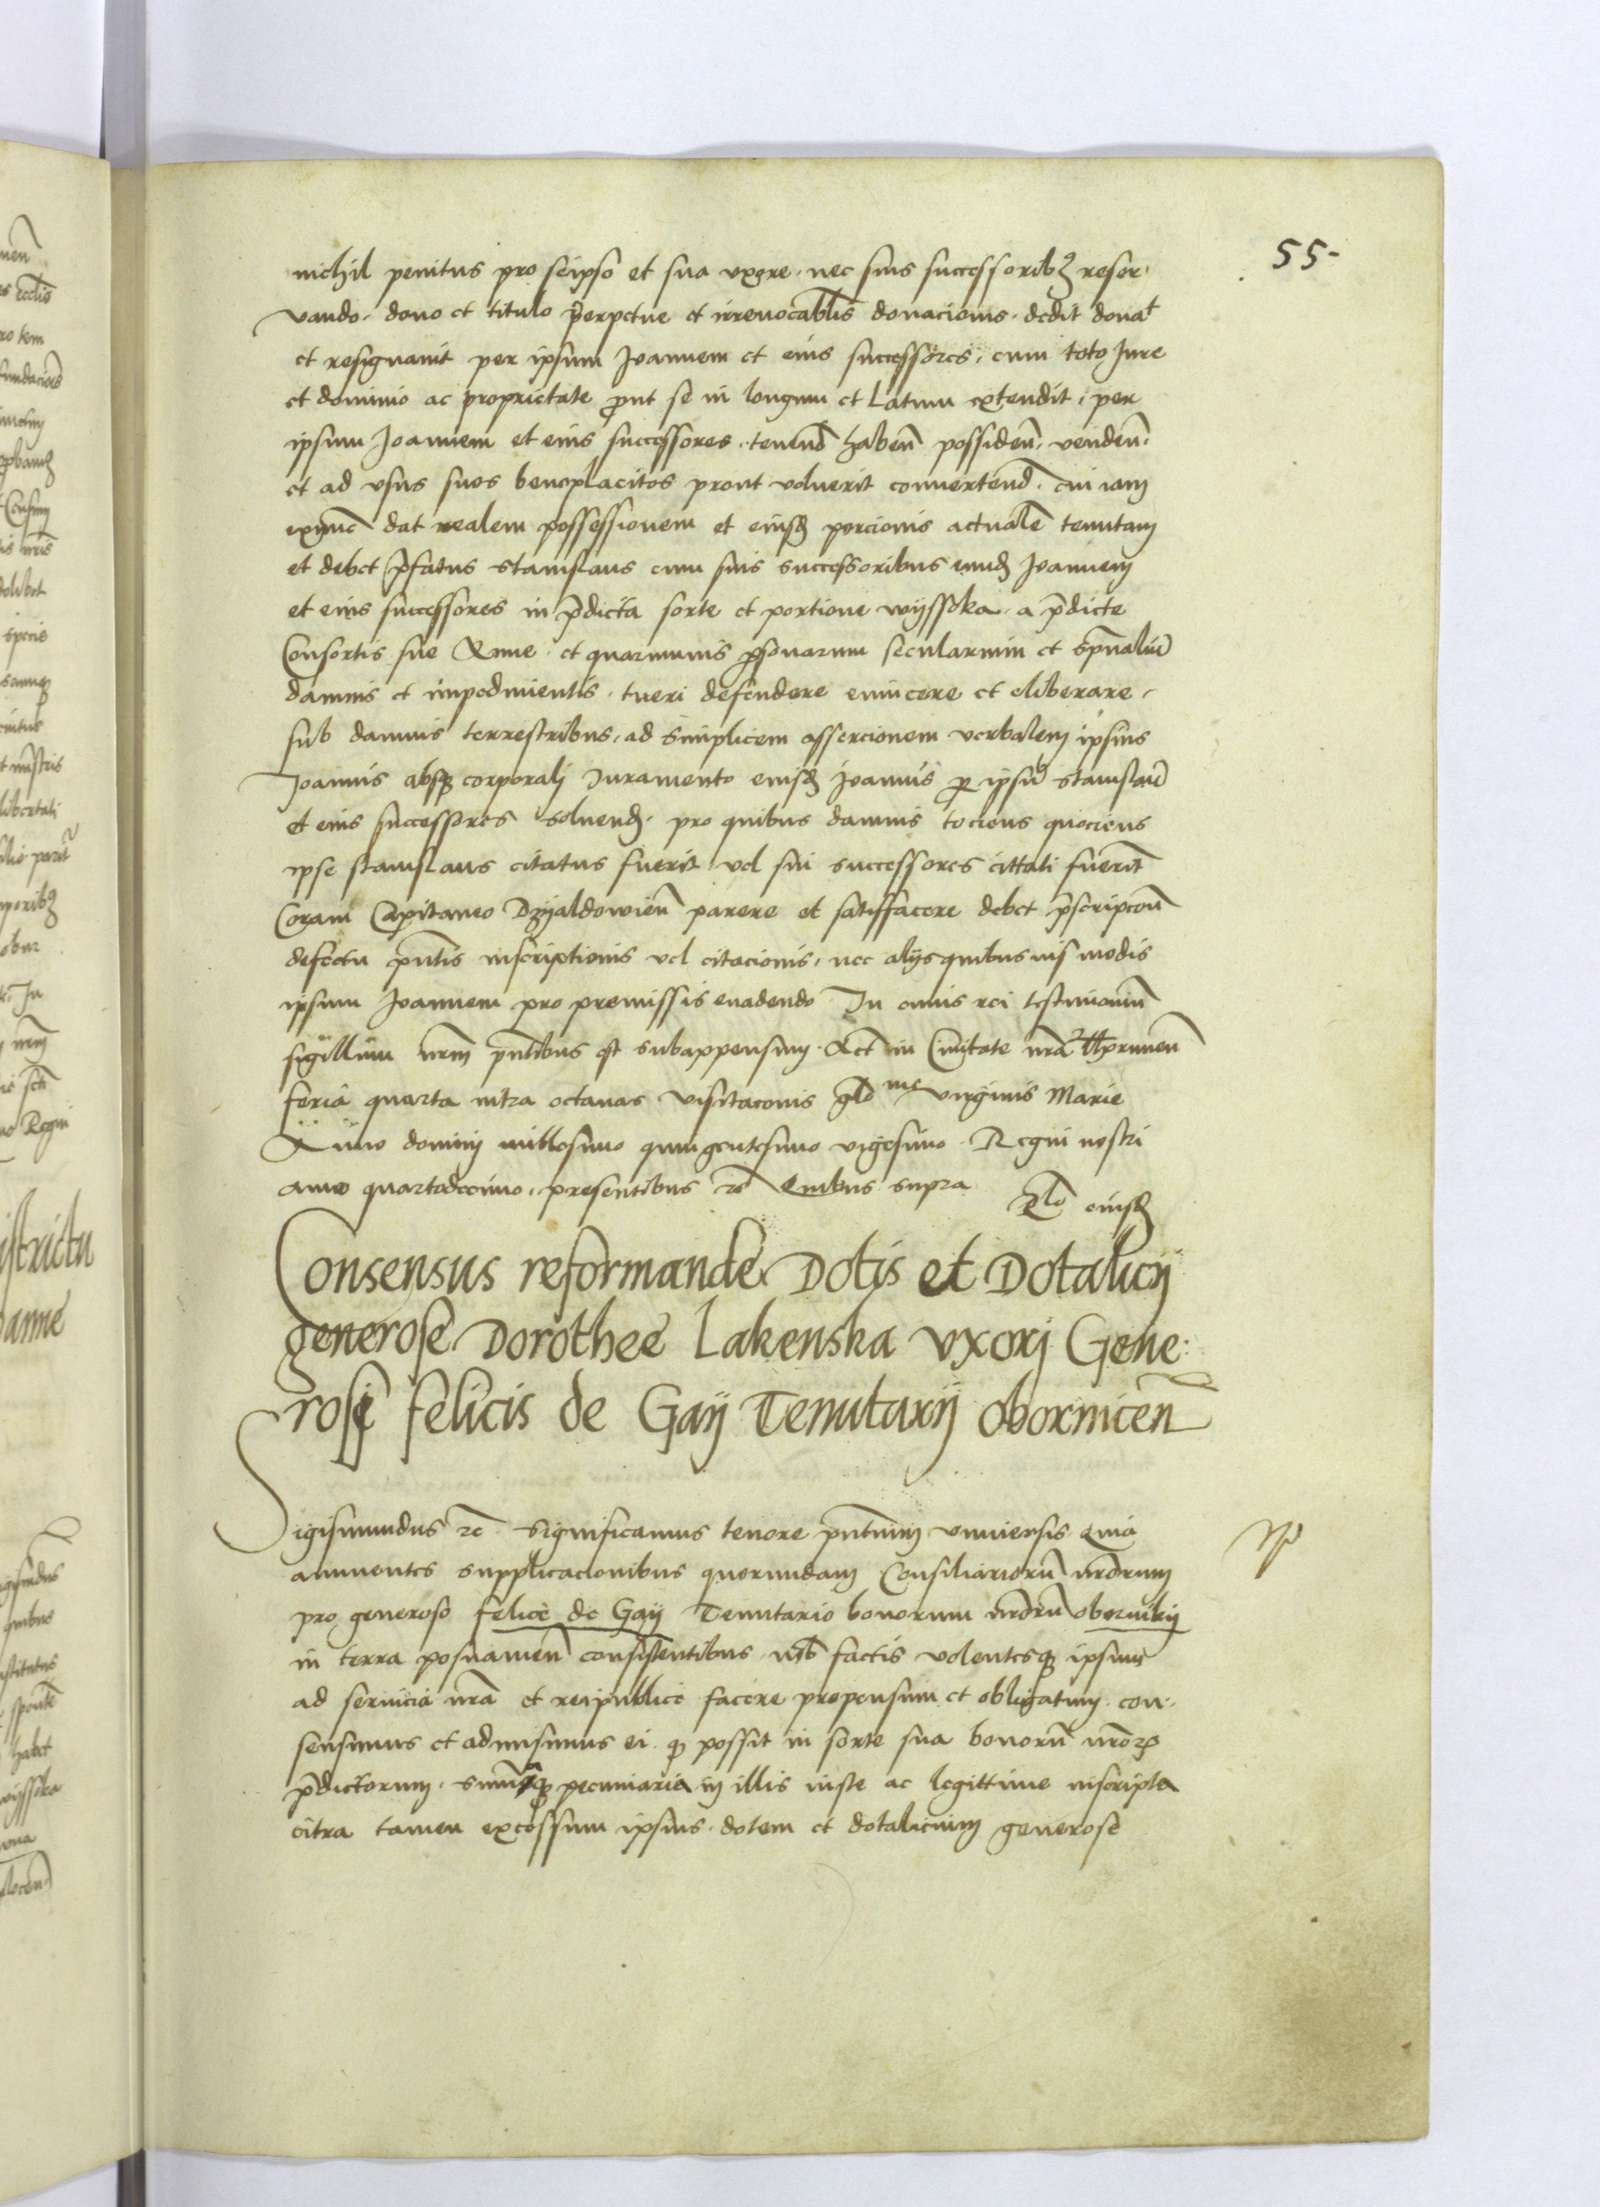 55-
nichil penitus pro seipso et sua vxore, nec suis successorib3 reser,
vando. dono et titulo perpetue et irreuocablis donacionis. dedit donat
et resignauit per ipsum Joannem et eius successores, cum toto Jure
et dominio ac proprietate prout se in longum et Latum extendit, per
ipsum Joannem et eius successores, tenend haben possiden, venden,
et ad vsus suos beneplacitos prout voluerit conuertend. cui iam
exnunc dat realem possessionem et eiusd porcionis actuale tenutam
et debet pfatus stanislaus cum suis successoribus eund Joannem
et eius successores in pdicta sorte et portione wyssoka. a pdicte
Consortis sue Anne. et quorumuis psonarum secularium et spualium
damnis et impedimentis. tueri defendere euincere et eliberare,
sub damnis terrestribus, ad simplicem assercionem verbalem ipsius
Joannis absq corporali Juramento eiusd Joannis p ipsu stanislau
et eius successores soluend. pro quibus damnis tociens quociens
ipse stanislaus citatus fuerit vel sui successores cittati fuerit
Coram Capitaneo Dzyaldowien parere et satisfacere debet pscripcon
defectu pntis inscriptionis vel citacionis, nec alijs quibusuis modis
ipsum Joannem pro premissis euadendo. In cuius rei testimonium
sigillum nrm pntibus est subappensum. Act in Ciuitate nra Thorunen
feria quarta intra octauas visitaconis glo me virginis Marie
Anno domini millesimo quingentesimo vigesimo. Regni nostri
anno quartodecimo, presentibus rc Quibus supra
Rlo eiusd
Consensus reformande Dotis et Dotalicij
generose Dorothee Lakenska vxorj Gene:
rosj felicis de Gaij Tenutarij obornicen
Sigismundus rc. Significamus tenore pntium vniuersis. Quia
annuentes supplicacionibus quorundam Consiliarioru nrorum
pro generoso felice de Gaij Tenutario bonorum nroru oborniky
in terra posnanien consistentibus nob factis volentesq ipsum
ad seruicia nra et reipublice facere propensum et obligatum. con,
sensimus et admisimus ei. q possit in sorte sua bonoru nror
pdictorum. pecuniaria in illis iuste ac legittime inscripta
citra tamen excessum ipsius. dotem et dotalicium generose